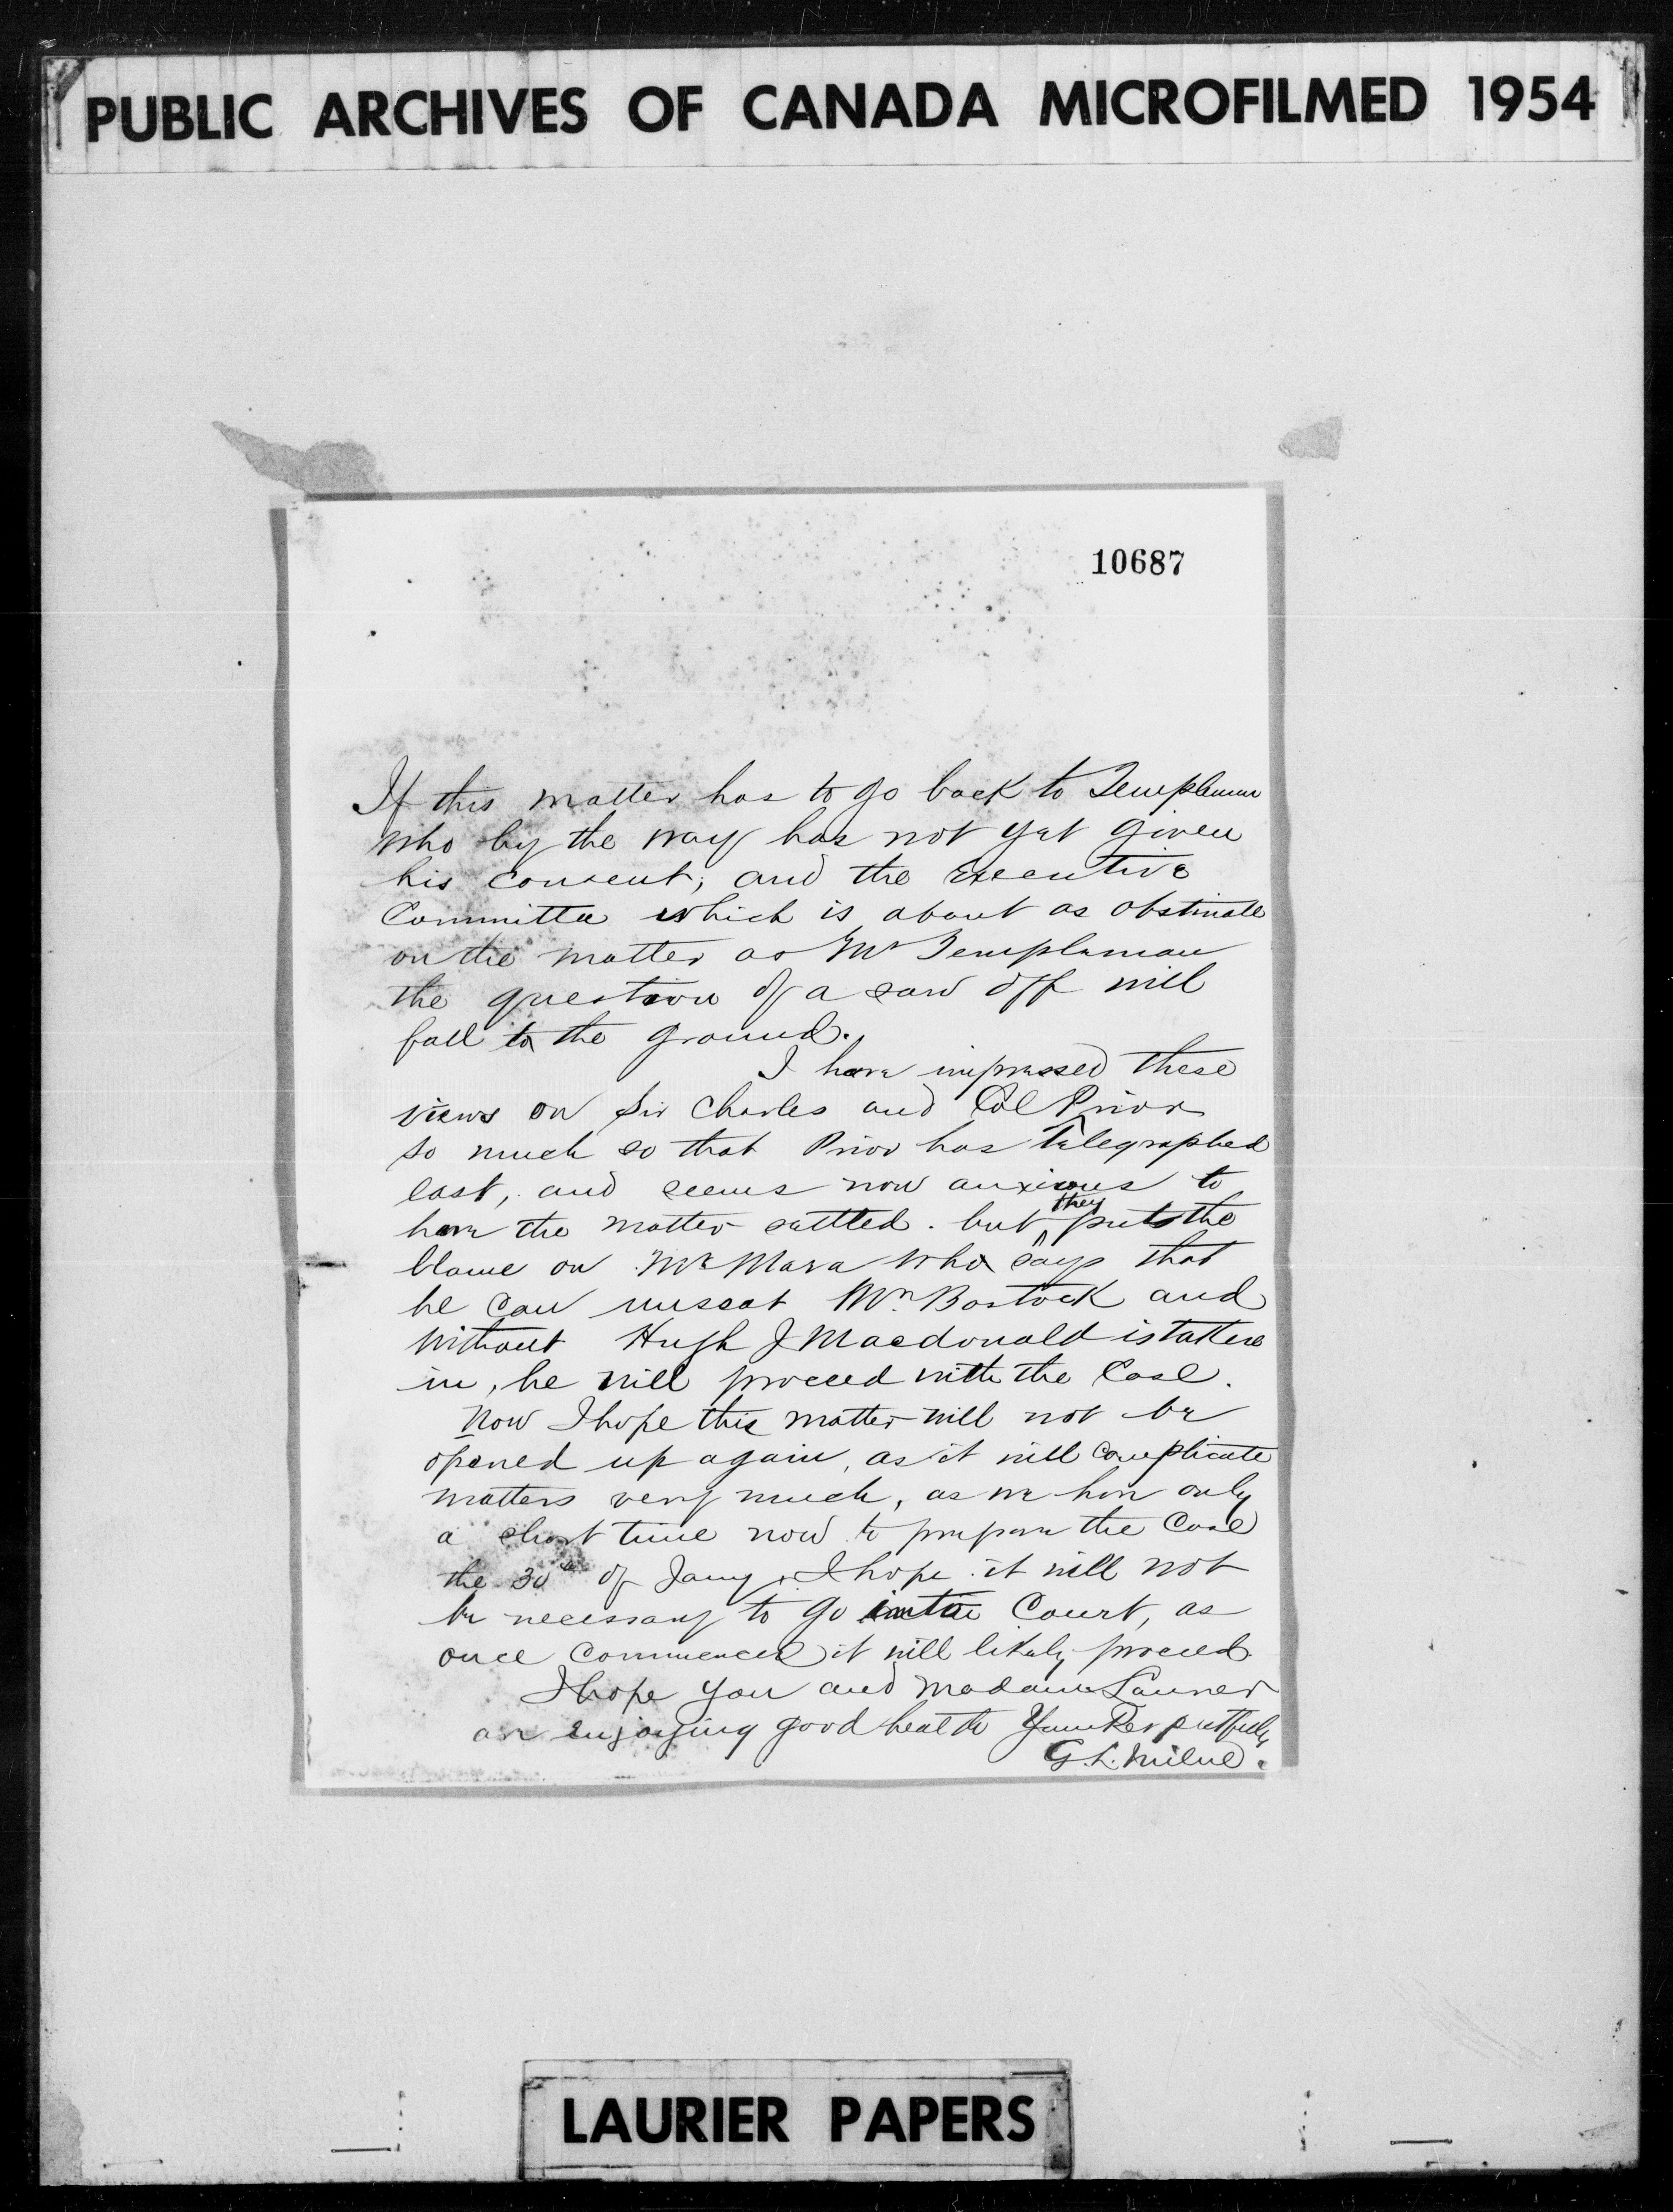 PUBLIC ARCHIVES OF CANADA MICROFILMED 1954
10687
If this matter has to go back to Templeman
who by the way has not yet given
his consent; and the executive
Committee which is about as obstinate
on the matter as Mr Templeman
the question of a saw off will
fall to the ground.
I have impressed these
views on Sir Charles and Col Prior
so much so that Prior has telegraphed
east, and seems now anxious to
have the matter settled. but they puts the
blame on Mr Mara who says that
he can unseat Mr. Bostock and
without Hugh J Macdonald is taken
in, he will proceed with the Case.
Now I hope this matter will not be
opened up again, as it will complicate
matters very much, as we have only
a short time now to prepare the Case
the 30th of Jany. I hope it will not
be necessary to go into Court, as
once Commenced it will likely proceed
I hope you and Madame Laurier
are enjoying good health Yours Respectfully
G. L. Milne.
LAURIER PAPERS